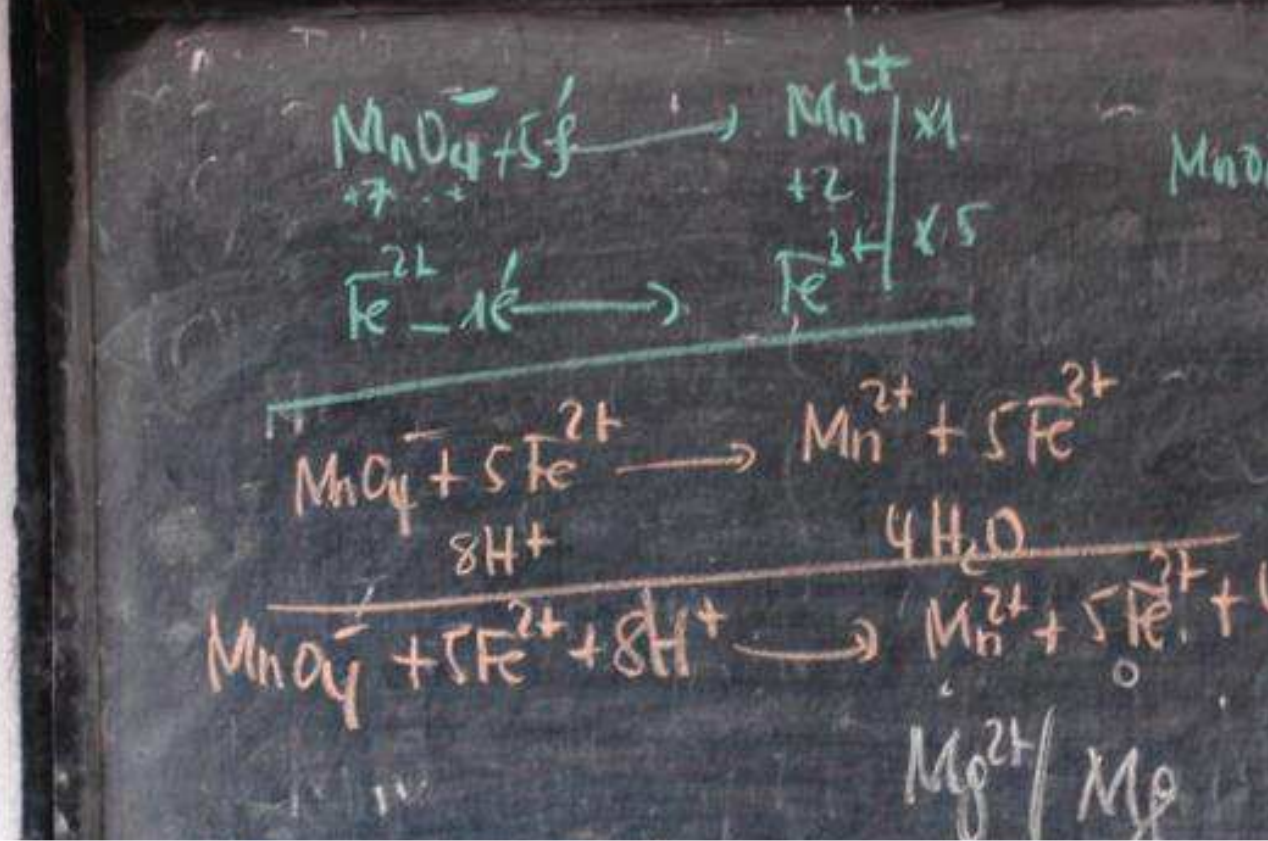 MnO₄⁻ + 5é → Mn²⁺ | x1
+7 +2
Fe²⁺ - 1é → Fe³⁺ | x5
MnO₄⁻ + 5Fe²⁺ → Mn²⁺ + 5Fe³⁺
8H⁺ 4H₂O
MnO₄⁻ + 5Fe²⁺ + 8H⁺ → Mn²⁺ + 5Fe³⁺ +
Mg²⁺/Mg